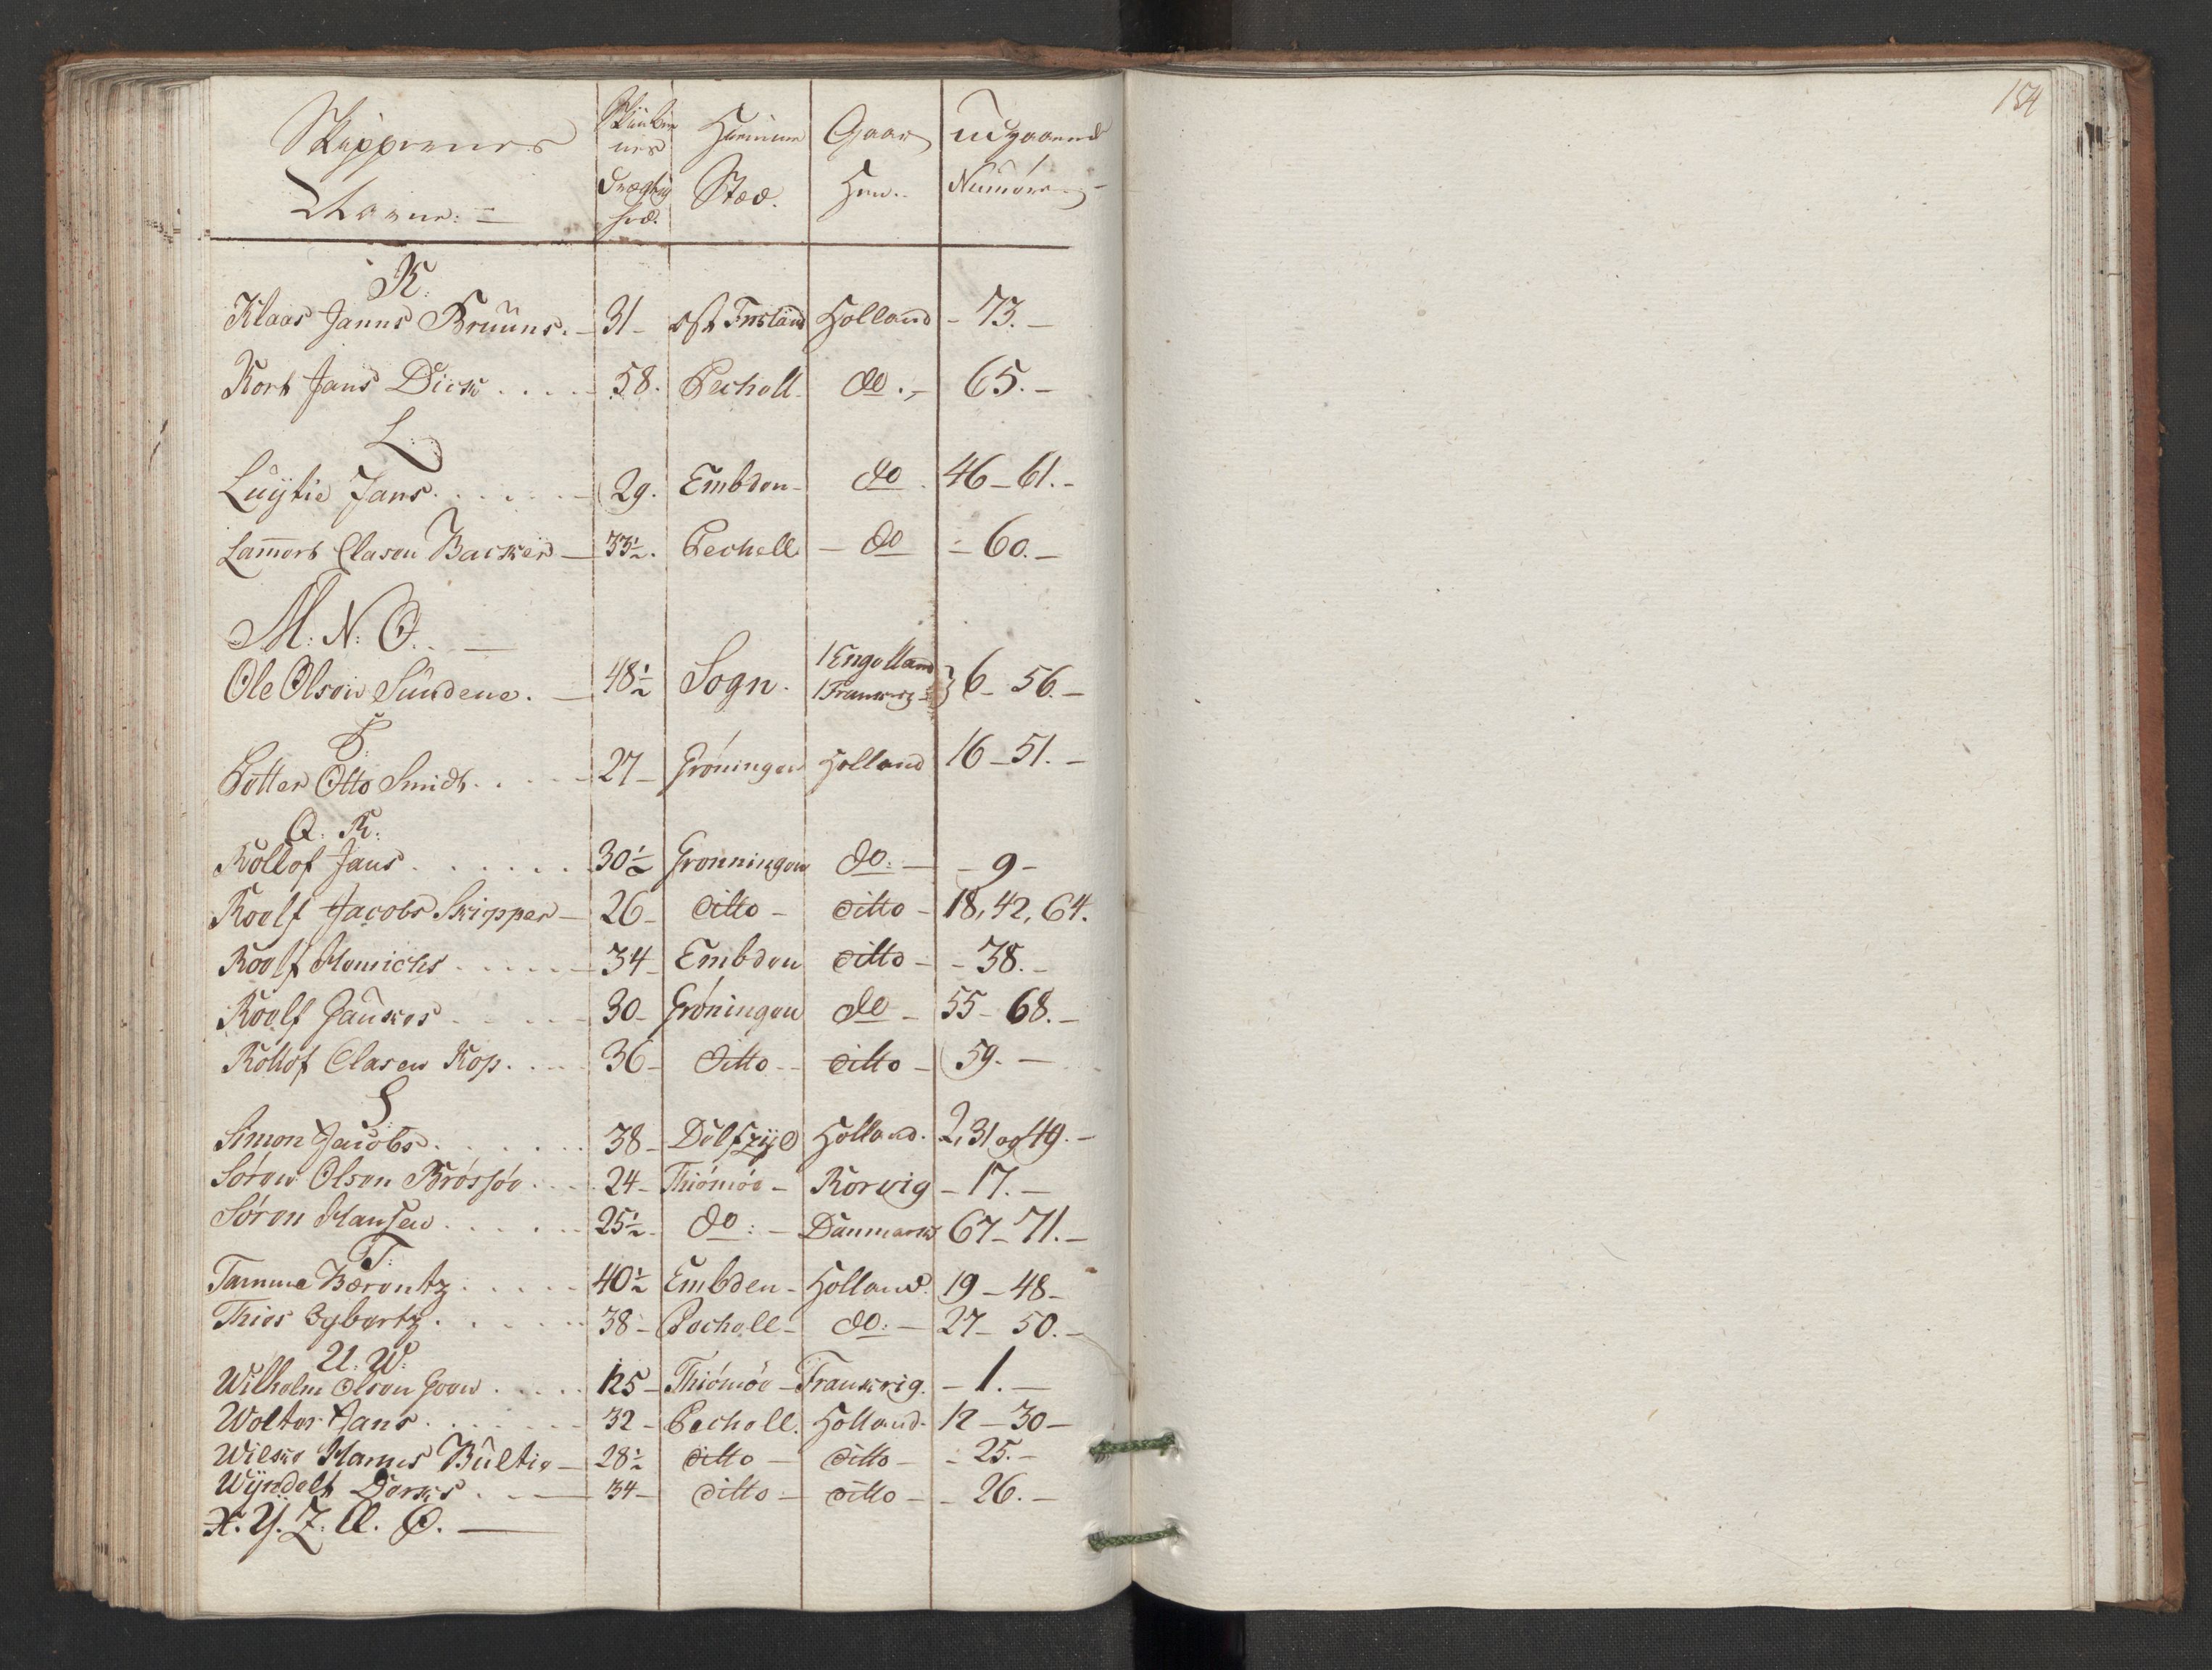 154
Skippernes Skibernes Hiemme Gaar Udgaaende
Navne: Drægtighed. Sted. Hen. Numere
K:
Klaas Janns Bruuns. - 31 - Ost Frisland Holland - 73. -
Kort Jans Dick .... 58. Pechell do. - 65. -
L:
Luytie Jans ..... 29. Embden - do. 46 - 61. -
Lammert Clasen Backer - 33½. Pechell - do - 60. -
M: N: O. -
Ole Olsen Sundene. - 48½ Sogn. 1 Engelland 1 Frankrig } 6 - 56. -
P:
Potter Otto Smidt .... 27 - Grøningen Holland 16 - 51. -
Q. R:
Rollof Jans ...... 30½ Grønningen do: - - 9 -
Roelf Jacobs Skipper - 26 - ditto - ditto - 18, 42, 64.
Roelf Henrichs ..... 34 - Embden ditto - - 38. -
Roelf Jaukes .... 30 - Grøningen do - 55 - 68. -
Rollof Clasen Kop .... 36 - ditto - ditto - 59. -
S
Simon Jacobs ...... 38 - Delfzyl Holland. 2, 31 og 49. -
Søren Olsen Brøssøe .... 24 - Thiømøe - Rørvig - 17. -
Søren Hansen ..... 25½ - do: - Danmark 67 - 71. -
T:
Tamme Berentz ..... 40½ Embden - Holland. 19 - 48 -
Thies Eybertz ..... 38 - Pechell - do: - 27 - 50. -
U. W:
Wilhelm Olsen Goen ..... 125 - Thiømøe - Frankrig. - 1. -
Wolter Jans ...... 32 - Pechell. Holland - 12 - 30 -
Wilske Hames Bultie - 28½ ditto - ditto - - 25. -
Wyndelt Derks . - 34 - ditto - ditto - - 26. -
X. Y. Z. Æ. Ø. -